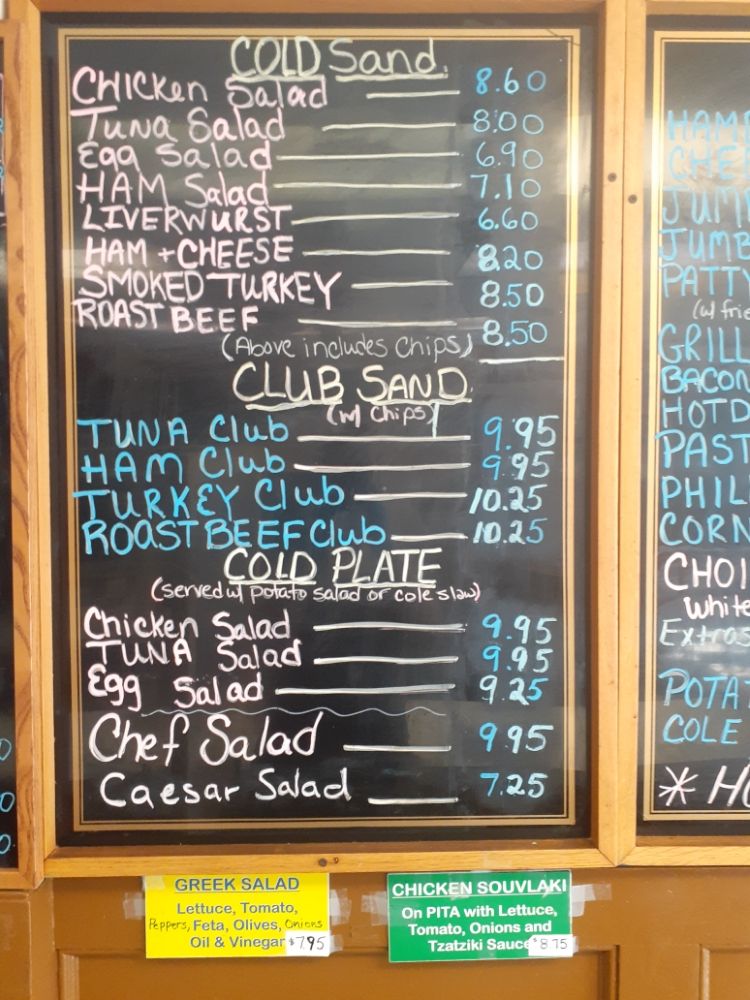 COLD Sand.
CHICKEN Salad 8.60
Tuna Salad 8.00
Egg Salad 6.90
HAM Salad 7.10
LIVERWURST 6.60
HAM + CHEESE 8.20
SMOKED TURKEY 8.50
ROAST BEEF 8.50
(Above includes Chips)
CLUB SAND.
(w/ Chips)
TUNA Club 9.95
HAM Club 9.95
TURKEY Club 10.25
ROAST BEEF Club 10.25
COLD PLATE
(served w/ potato salad or cole slaw)
Chicken Salad 9.95
TUNA Salad 9.95
Egg Salad 9.25
Chef Salad 9.95
Caesar Salad 7.25
GREEK SALAD
Lettuce, Tomato,
Peppers, Feta, Olives, Onions
Oil & Vinegar $7.95
CHICKEN SOUVLAKI
On PITA with Lettuce,
Tomato, Onions and
Tzatziki Sauce $8.75
HAM
CHE
JUM
JUMB
PATTY
(w/ frie
GRILL
BACON
HOTD
PAST
PHIL
CORN
CHOI
White
Extras
POTA
COLE
* HO